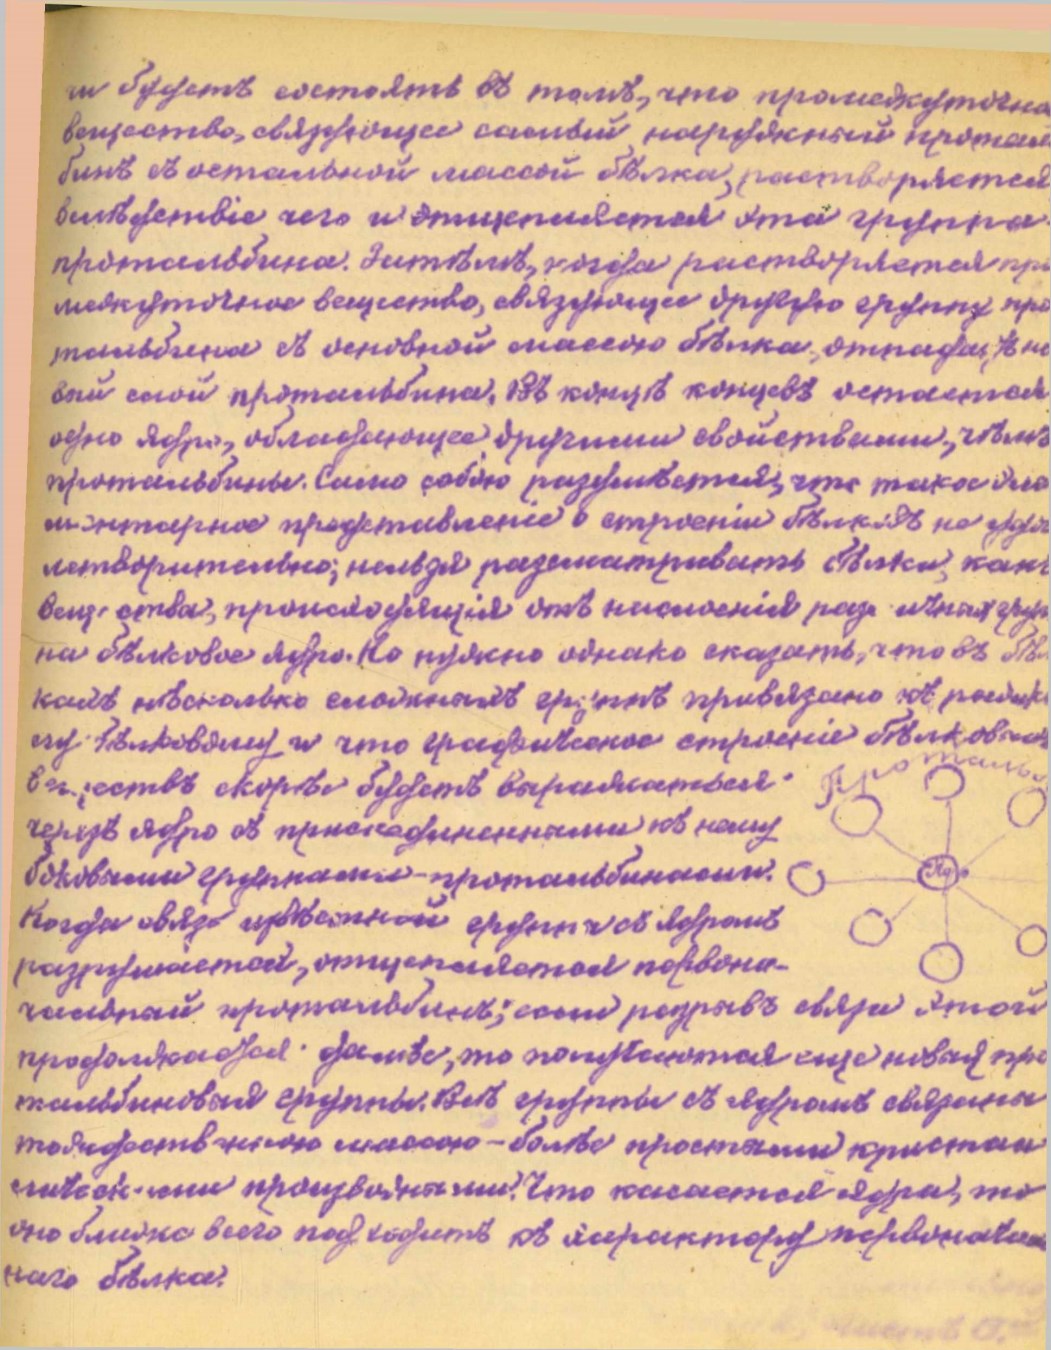 и будетъ состоять въ томъ, что промежуточно
вещество, связующее самый наружный протал
бинъ съ остальной массой бѣлка, растворяется
вслѣдствіе чего и отщепляется эта группа
протальбина. Затѣмъ, когда растворяется про
межуточное вещество, связующее другую группу про
тальбина съ основной массою бѣлка, отпада
вый слой протальбина. Въ концѣ концовъ остается
одно ядро, обладающее другими свойствами, чѣмъ
протальбины. Само собою разумѣется, что такое эле
ментарное представленіе о строеніи бѣлковъ не удов
летворительно; нельзя разсматривать бѣлки, какъ
вещества, происходящія отъ наслоенія
на бѣлковое ядро. Но нужно однако сказать, что въ бѣл
камъ нѣсколько сложныхъ группъ привязано къ
бѣлковому и что графическое строеніе бѣлковыхъ
веществъ скорѣе будетъ выражаться
черезъ ядро съ присоединенными къ нему
боковыми группами-протальбинами.
Когда связь известной группы съ ядромъ
разрушается, отщепляется первона-
чальный протальбинъ; если разрывъ связи этой
продолжается далѣе, то получаются еще новыя про
тальбиновыя группы. Всѣ группы съ ядромъ связаны
тождественною массою - болѣе простыми кристал
лическими производными. Что касается ядра, то
оно ближе всего подходитъ къ характеру первоначаль
наго бѣлка.
Протальб
Ядро